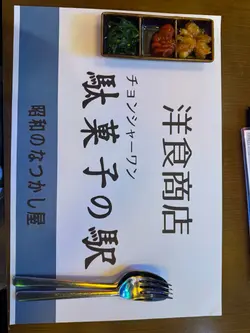 洋食商店
チョンシャーワン
駄菓子の駅
昭和のなつかし屋